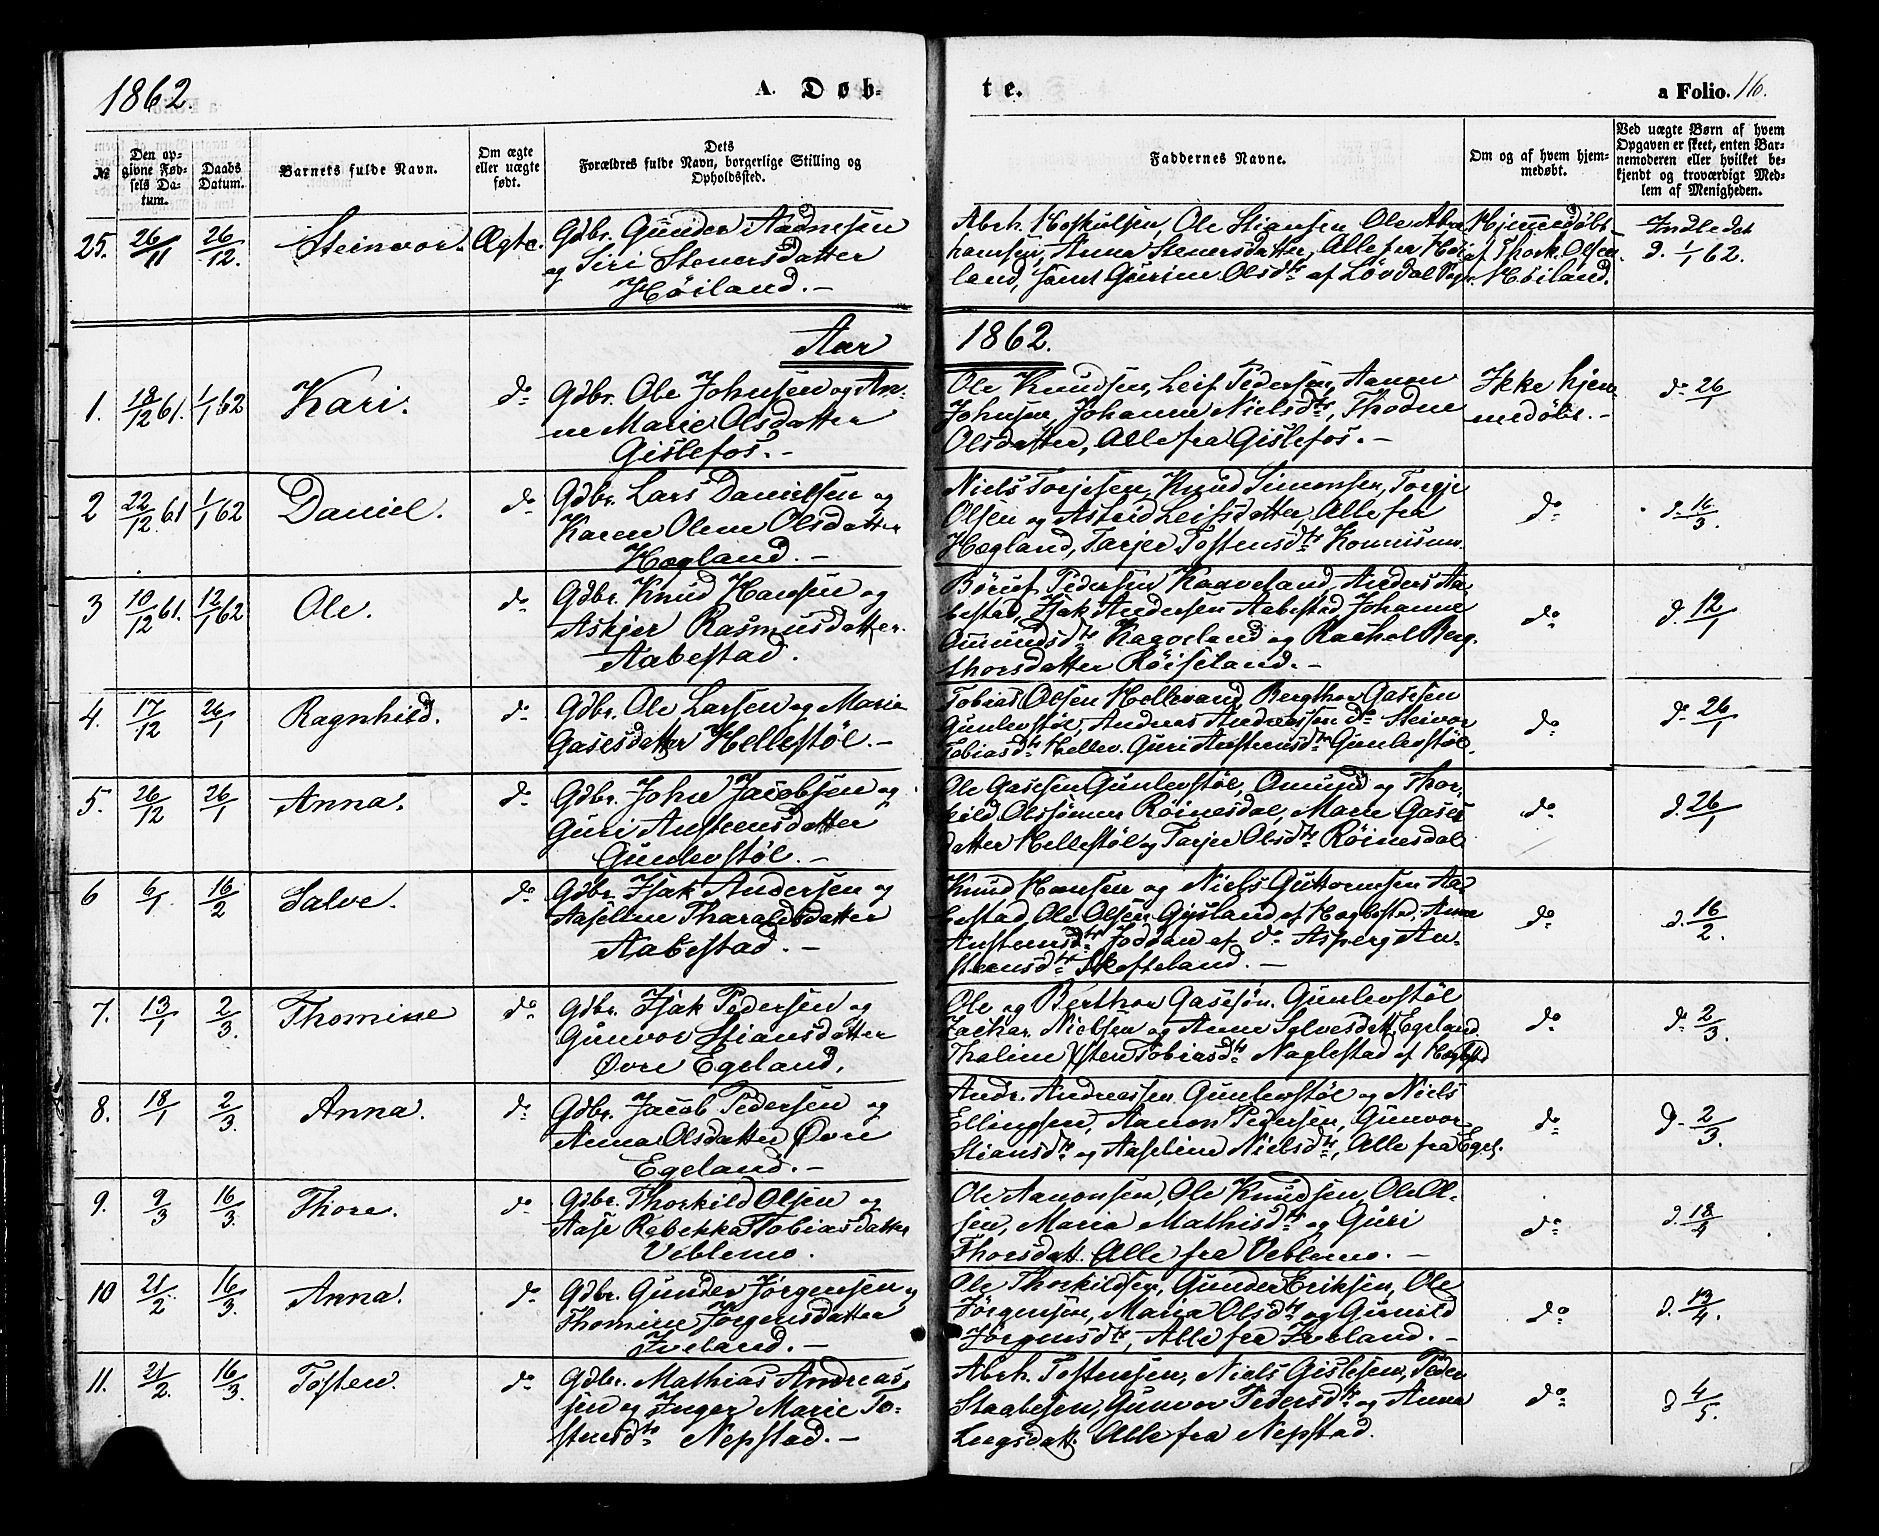 1862.
A. Døb-
te.
a Folio. 16.
№
Den op-
givne Fød-
sels Da-
tum.
Daabs
Datum.
Barnets fulde Navn.
Om ægte
eller uægte
født.
Dets
Forældres fulde Navn, borgerlige Stilling og
Opholdssted.
Faddernes Navne.
Om og af hvem hjem-
medøbt.
Ved uægte Børn af hvem
Opgaven er skeet, enten Bar-
nemoderen eller hvilket be-
kjendt og troværdigt Med-
lem af Menigheden.
25. 26/11 26/12. Steinvor. Ægte.
Gdbr. Gunder Aadnesen
og Siri Stenersdatter
Høiland. –
Abrh. Hoskulsen, Ole Stiansen, Ole Abra-
hamsen, Anna Stenersdatter, Alle fra Høi-
land, samt Gurine Olsdtr af Løvdal
Hjemmedøbt
af Thork. Olsen
Høiland.
Indledet
d. 1/1 62.
Aar 1862.
1. 18/12 61. 1/1 62 Kari. do
Gdbr. Ole Johnsen og An-
ne Marie Olsdatter
Gislefos. –
Ole Knudsen, Leif Pedersen, Aanon
Johnsen, Johanne Nielsdtr, Thodne
Olsdatter, Alle fra Gislefos. –
Ikke hjem-
medøbt. –
do 26/1
2 22/12 61 1/1 62 Daniel. do
Gdbr. Lars Danielsen og
Karen Olene Olsdatter
Hægland. –
Niels Torjesen, Knud Simonsen, Torje
Olsen og Astrid Leifsdatter, Alle fra
Hægland, Tarjer Tostensdtr
do
d. 16/3.
3 10/12 61. 12/1 62 Ole. do
Gdbr. Knud Hansen og
Askjer Rasmusdatter.
Aabestad.
Børuf Pedersen Kaaveland, Anders Aa-
bestad, Isak Andersen Aabestad, Johanne
Omundsdtr Kaaveland og Rachel Berg-
thorsdatter Røiseland. –
do
d. 12/1
4. 17/12 26/1 Ragnhild. do
Gdbr. Ole Larsen og Marie
Gasesdatter Hellestøl. –
Tobias Olsen Hellevand, Bergthor Gasesen
Gunlevstøl, Andreas Andreassen do Steivor
Tobiasdtr Hellev. Guri Austensdtr Gunlevstøl.
do
do 26/1
5. 26/12 26/1 Anna. do
Gdbr. John Jacobsen og
Guri Austeensdatter
Gunlevstøl. –
Ole Gasesen Gunlevstøl, Omund og Thor-
kild Olssønner Røinesdal, Marie Gases-
datter Hellestøl og Tarjer Olsdtr Røinesdal
do
d. 26/1
6 6/1. 16/2 Salve. do
Gdbr. Isak Andersen og
Aaseline Tharaldsdatter
Aabestad. –
Knud Hansen og Niels Guttormsen Aa-
bestad, Ole Olsen Gysland af Hægbestad, Anne
Austensdtr Joddan af do Asberg Au-
steensdtr Skofteland. –
do
d. 16/2.
7. 13/1 2/3. Thomine do
Gdbr. Isak Pedersen og
Gunvor Stiansdatter
Øvre Egeland.
Ole og Berthor Gasesøn. Gunlevstøl
Zachar. Nielsen og Anne Salvesdatt. Egeland.
Thaline Tobiasdtr Naglestad af Hægbstd
do
do 2/3.
8. 18/1 2/3. Anna. do
Gdbr. Jacob Pedersen og
Anna Olsdatter Øvre
Egeland. –
Andr. Andreassen Gunlevstøl og Niels
Ellingsen, Aanon Pedersen, Gunvor
Stiansdtr og Aaseline Nielsdtr, Alle fra Egel.
do
d. 2/3.
9. 9/3 16/3. Thore. do
Gdbr. Thorkild Olsen og
Aase Rebekka Tobiasdatter
Veblemo.
Ole Aanonsen, Ole Knudsen, Ole Ol-
sen, Maria Mathisdtr og Guri
Thorsdatt. Alle fra Veblemo. –
do
d. 18/4
10 21/2 16/3. Anna. do
Gdbr. Gunder Jørgensen og
Thomine Jørgensdatter
Iveland. –
Ole Thorkildsen, Gunder Eriksen, Ole
Jørgensen, Maria Olsdtr og Gunild
Jørgensdtr, Alle fra Iveland. –
do
d. 13/4.
11. 21/2. 16/3. Tosten. do
Gdbr. Mathias Andreas-
sen og Inger Marie To-
stensdtr Nepstad. –
Abrh. Tostensen, Niels Gislesen, Peder
Staalesen, Gunvor Pedersdtr og Anna
Alle fra Nepstad.
do
d 4/5.